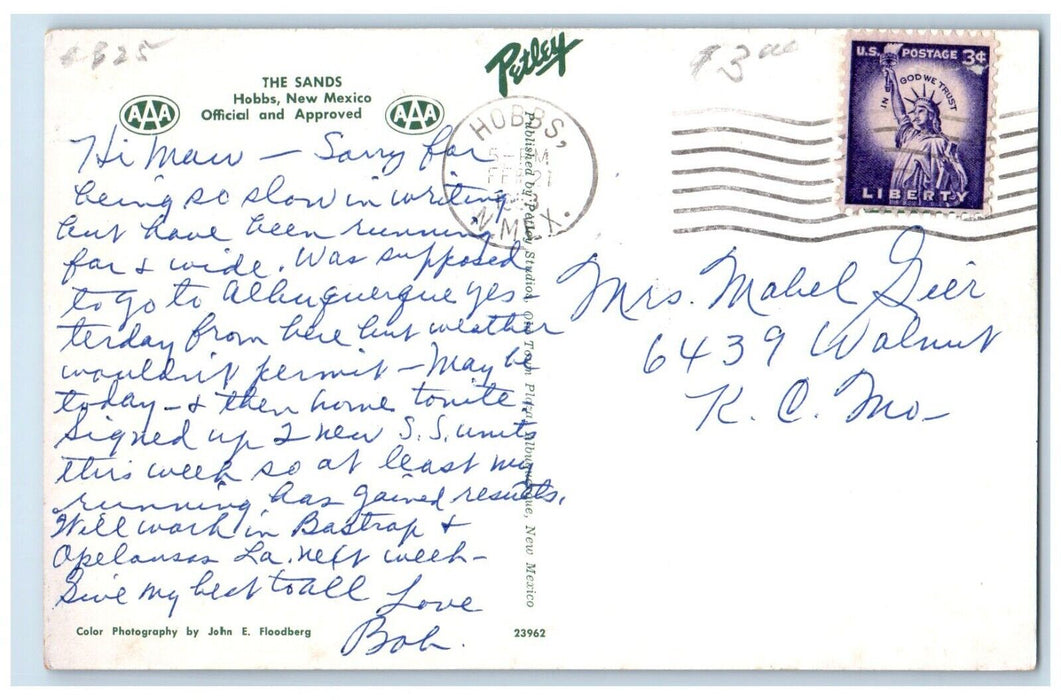 $825
$3.00
Petley
THE SANDS
Hobbs, New Mexico
Official and Approved
AAA
AAA
HOBBS,
N. MEX.
U.S. POSTAGE 3¢
IN GOD WE TRUST
LIBERTY
Hi Maw — Sorry for
being so slow in writing
but have been running
far & wide. Was supposed
to go to Albuquerque yes-
terday from here but weather
wouldn't permit — May be
today — & then home tonite.
Signed up 2 new S.S. units
this week so at least my
running has gained results.
Will work in Bastrop &
Opelousas La. next week —
Give my best to all
Love
Bob.
Mrs. Mabel Gier
6439 Walnut
K. C. Mo —
Published by Petley Studios, Old Town Plaza, Albuquerque, New Mexico
Color Photography by John E. Floodberg
23962